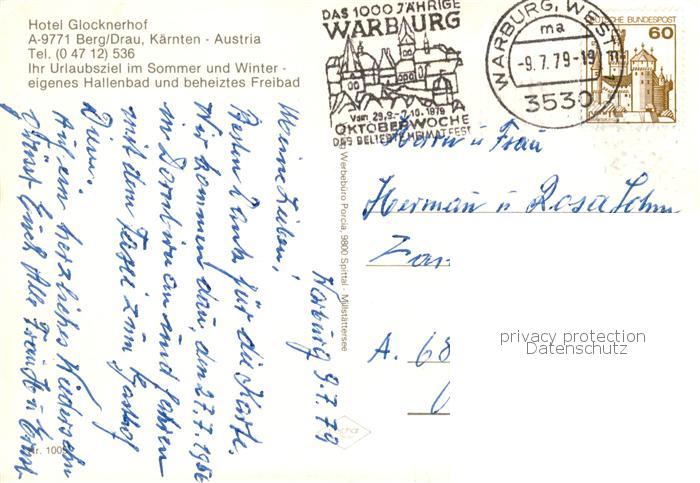 Hotel Glocknerhof
A-9771 Berg/Drau, Kärnten - Austria
Tel. (0 47 12) 536
Ihr Urlaubsziel im Sommer und Winter -
eigenes Hallenbad und beheiztes Freibad
DAS 1000 JÄHRIGE
WARBURG
Vom 29.9.-7.10.1979
OKTOBERWOCHE
DAS BELIEBTE HEIMATFEST
WARBURG, WESTF
ma
-9.7.79-19
3530
DEUTSCHE BUNDESPOST
60
Herrn u Frau
Herman u Rosa
A. 68
privacy protection
Datenschutz
Warburg 9.7.79
Meine Lieben,
Besten Dank für die Karte.
Wir kommen am, den 27.7.
in Dornbirn an und fahren
mit dem Taxi zum Gasthof
Auf ein herzliches Wiedersehn
Euch Alle Traudt u Ernst
Werbebüro Porcia, 9800 Spittal - Millstättersee
Nr. 100